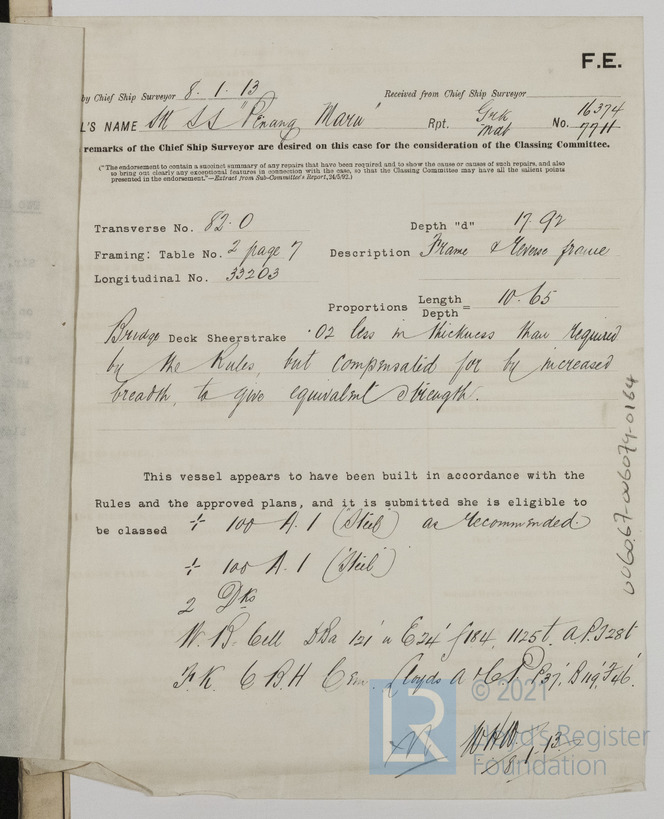 F.E.
by Chief Ship Surveyor 8.1.13 Received from Chief Ship Surveyor
L'S NAME SS "Penang Maru" Rpt. Grk Mab No. 16374 7711
remarks of the Chief Ship Surveyor are desired on this case for the consideration of the Classing Committee.
("The endorsement to contain a succinct summary of any repairs that have been required and to show the cause or causes of such repairs, and also
to bring out clearly any exceptional features in connection with the case, so that the Classing Committee may have all the salient points
presented in the endorsement."—Extract from Sub-Committee's Report, 24/5/92.)
Transverse No. 82.0 Depth "d" 17.92
Framing: Table No. 2 page 7 Description Frame & Reverse frame
Longitudinal No. 33203
Proportions Length / Depth = 10.65
Bridge Deck Sheerstrake .02 less in thickness than required
by the Rules, but compensated for by increased
breadth, to give equivalent strength.
This vessel appears to have been built in accordance with the
Rules and the approved plans, and it is submitted she is eligible to
be classed ÷ 100 A.1 (Steel) as recommended.
÷ 100 A.1 (Steel)
2 Dks
W.B. Cell DBa 121' u E 24' f 184' 1125t. A.P.T 28t
F.K. 6 B.H Cem. Lloyds A & C P. P 37', B 119', F 46'.
WHW
8.1.13
006067-006074-0164
LR
© 2021
Lloyd's Register
Foundation